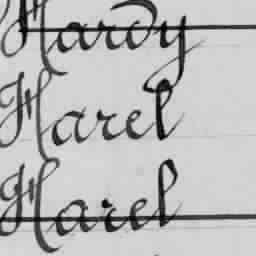 Hardy
Harel
Harel